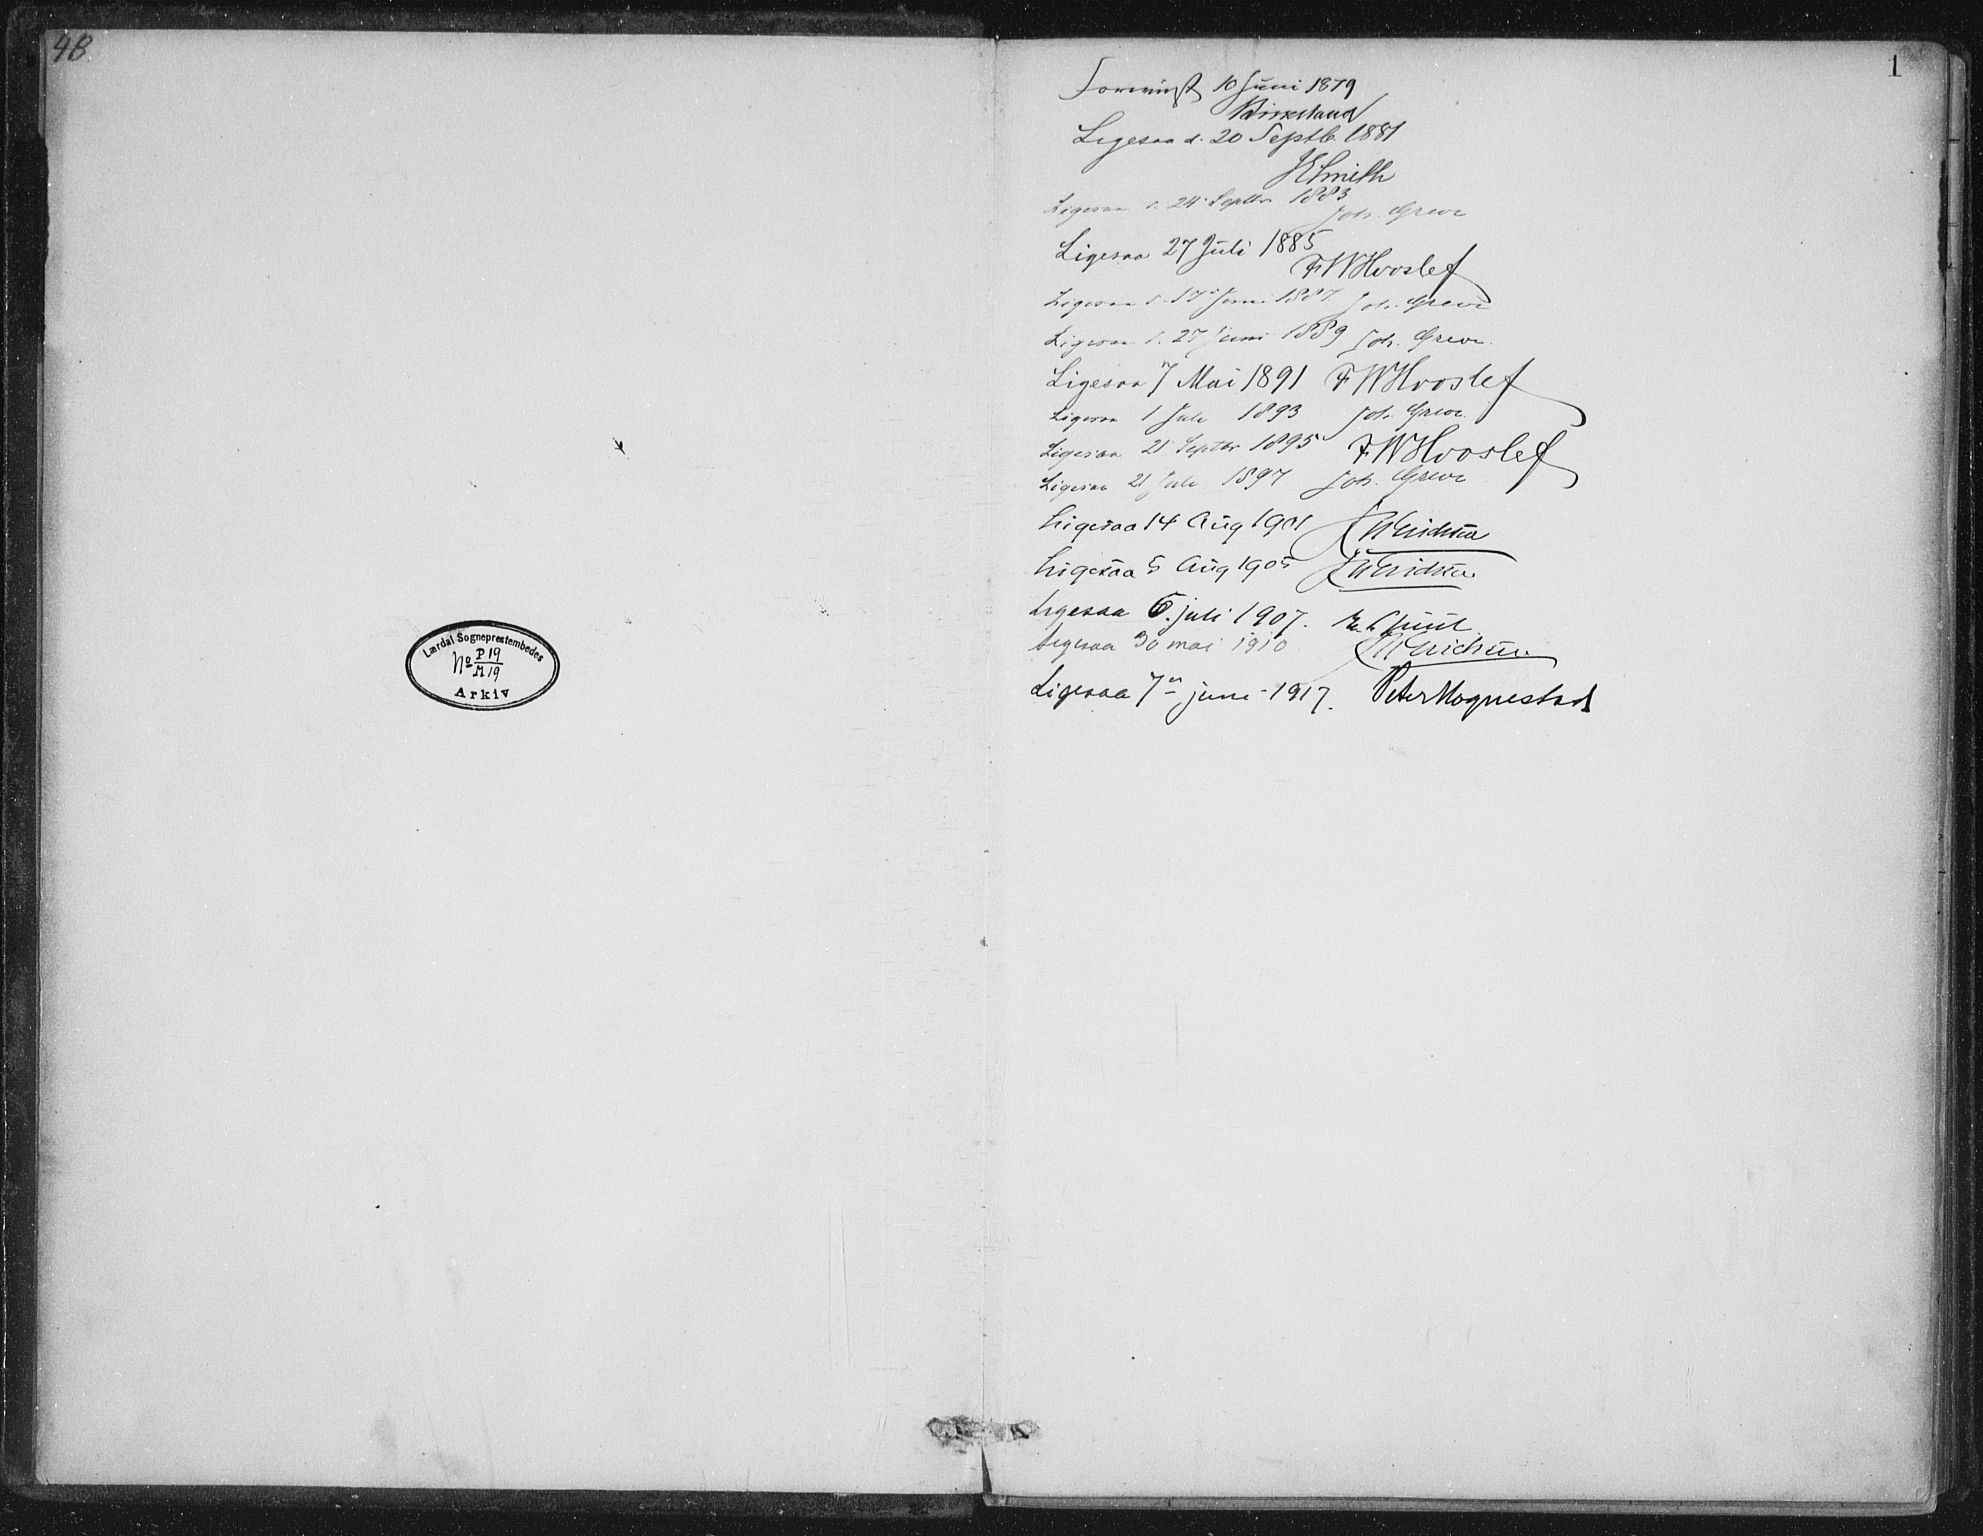 4B.
Lærdal Sogneprestembedes
No P19
M19
Arkiv
1
Forevist 10 Juni 1879
Birkeland
Ligesaa d. 20 Septb. 1881
JESmith
Ligesaa d. 24 Septbr 1883
Joh. Greve
Ligesaa 27 Juli 1885
FWHvoslef
Ligesaa d. 17 Juni 1887 Joh. Greve
Ligesaa d. 27 Juni 1889 Joh. Greve.
Ligesaa 7 Mai 1891 FWHvoslef
Ligesaa 1 Juli 1893 Joh. Greve.
Ligesaa 21 Septbr 1895 FWHvoslef
Ligesaa 21 Juli 1897 Joh. Greve
Ligesaa 14 Aug 1901 Erichsen
Ligesaa 5 Aug 1905 Erichsen
Ligesaa 6. juli 1907. Juul
Ligesaa 30 mai 1910 Erichsen.
Ligesaa 7de juni 1917. Peter Hognestad